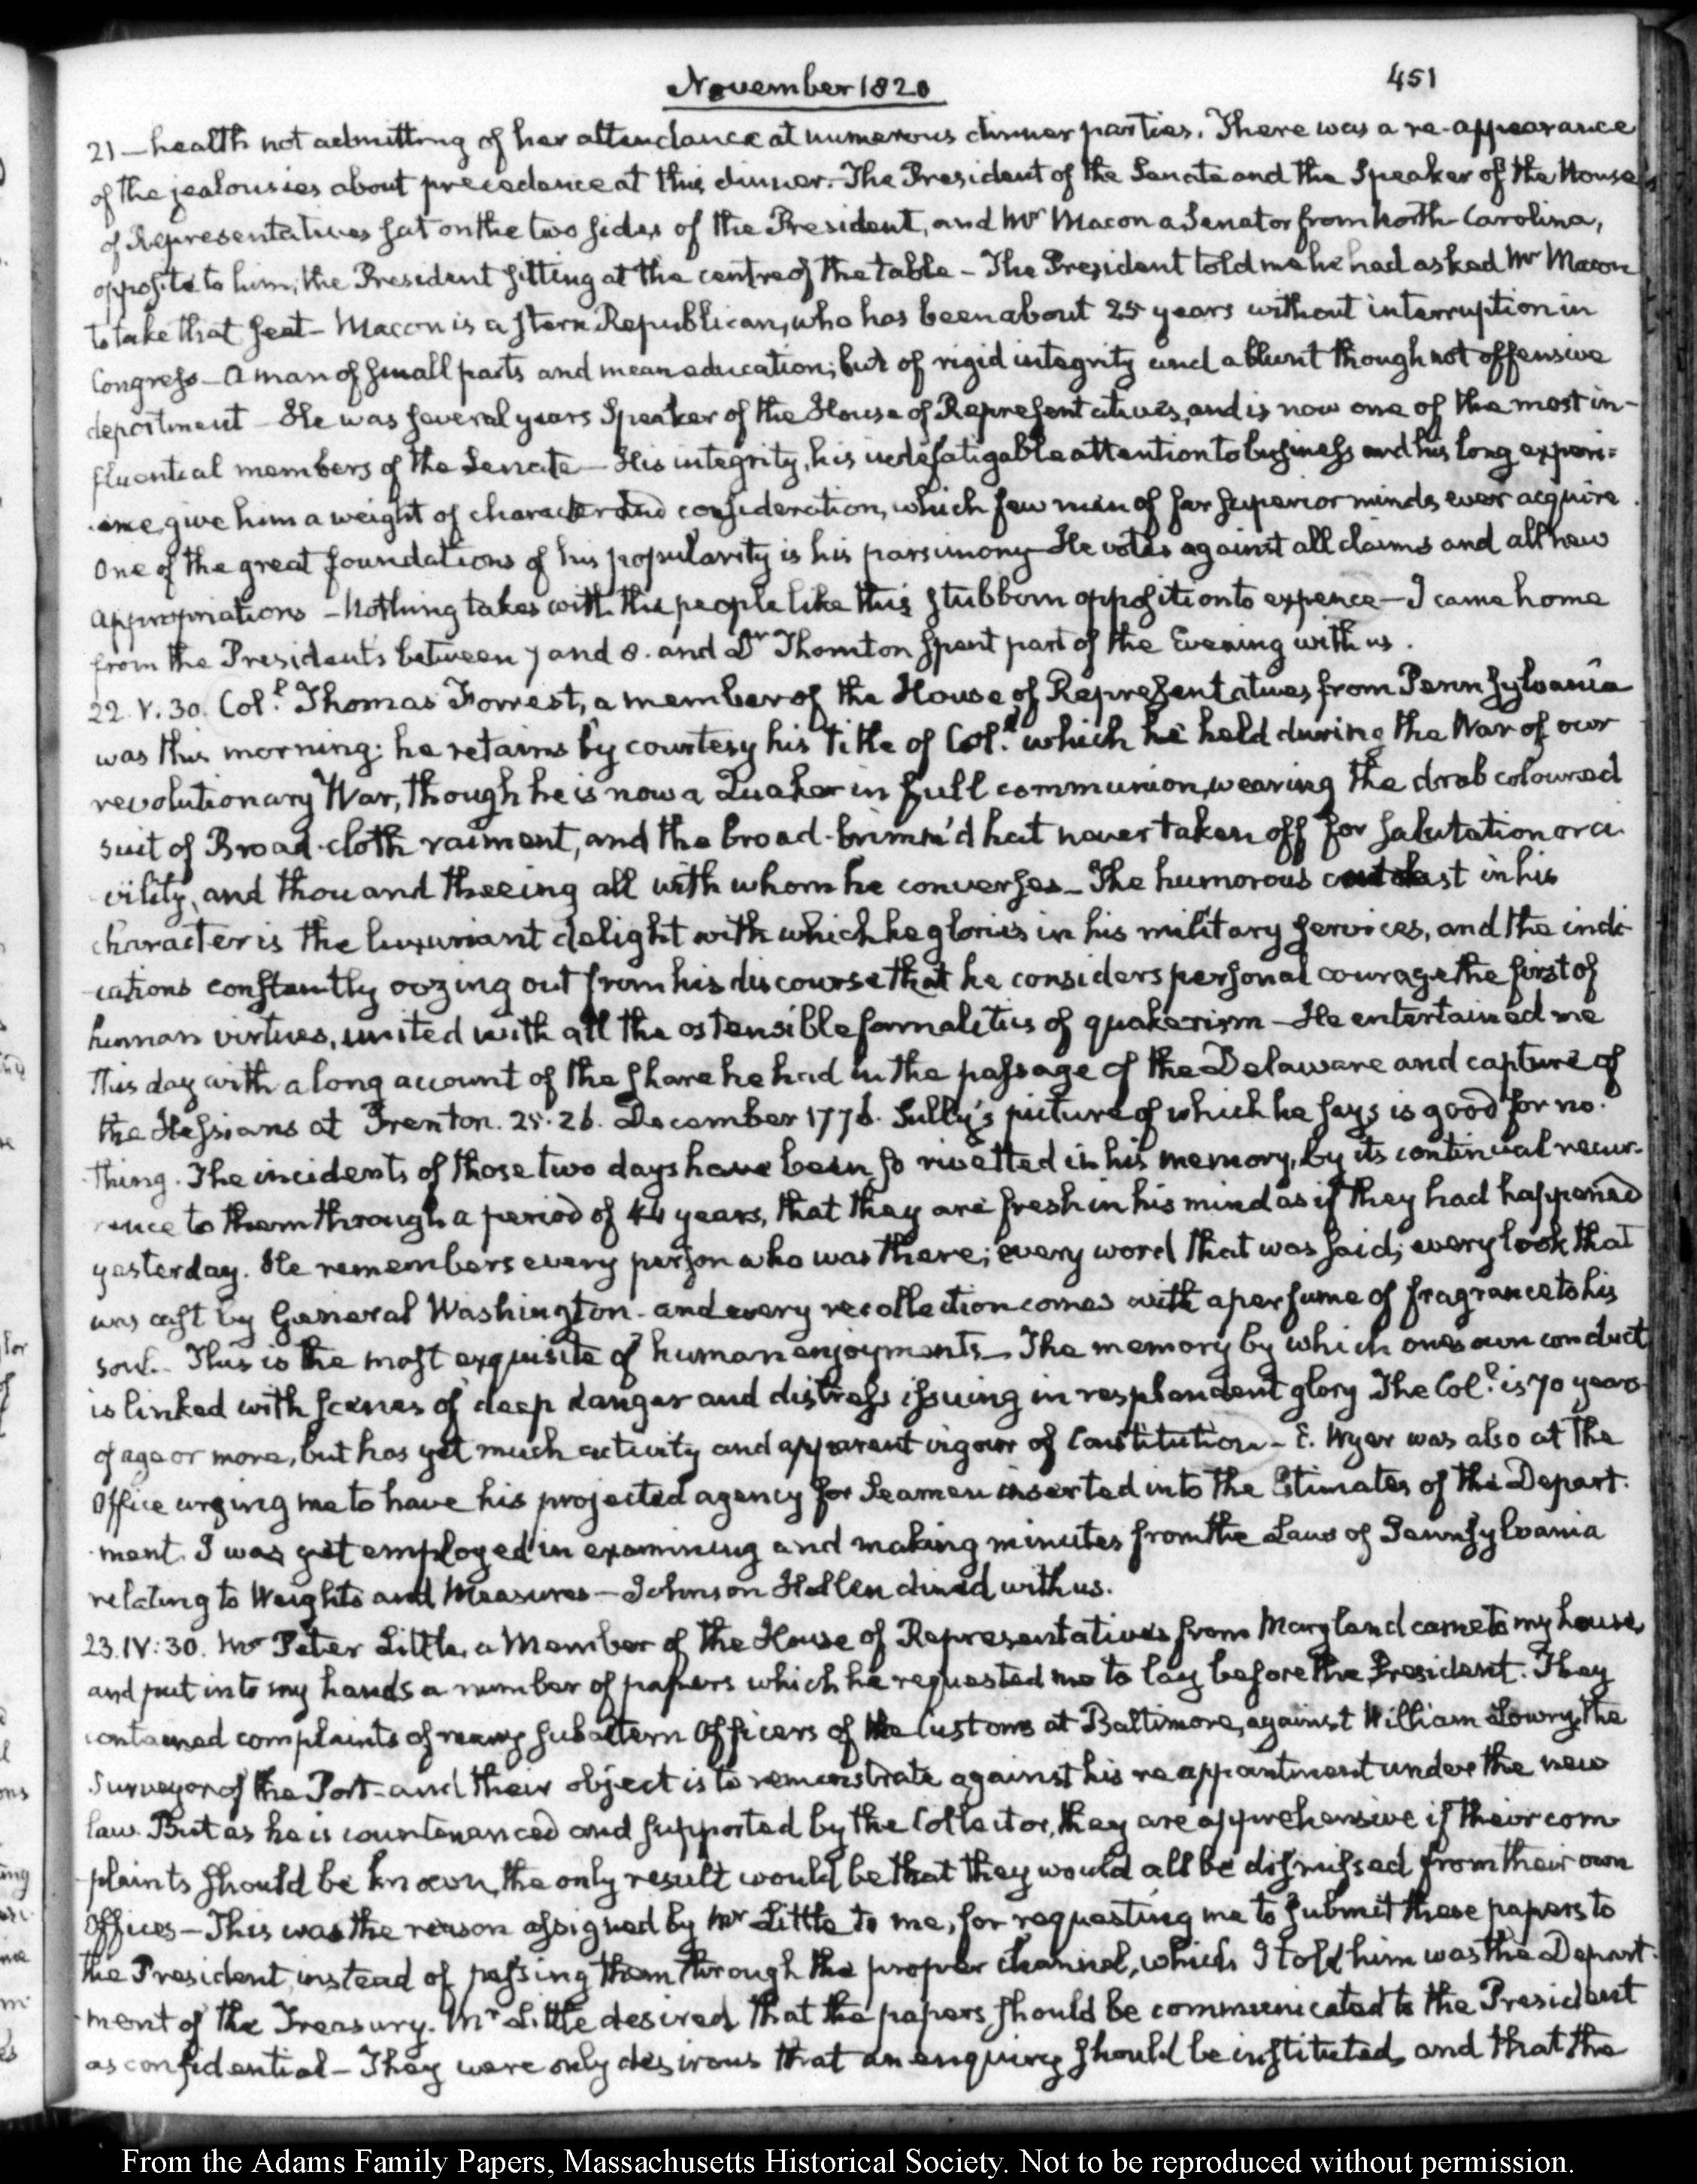 November 1820
451
21 — health not admitting of her attendance at numerous dinner parties. There was a re-appearance
of the jealousies about precedence at this dinner. The President of the Senate and the Speaker of the House
of Representatives sat on the two sides of the President, and Mr Macon a Senator from North-Carolina,
opposite to him; the President sitting at the centre of the table — The President told me he had asked Mr Macon
to take that seat — Macon is a stern Republican, who has been about 25 years without interruption in
Congress — A man of small parts and mean education; but of rigid integrity and a blunt though not offensive
deportment — He was several years Speaker of the House of Representatives, and is now one of the most in-
fluential members of the Senate — His integrity, his indefatigable attention to business and his long experi-
ence give him a weight of character and consideration, which few men of far superior minds ever acquire
One of the great foundations of his popularity is his parsimony — He votes against all claims and all new
appropriations — Nothing takes with the people like this stubborn opposition to expence — I came home
from the President's between 7 and 8. and Dr Thornton spent part of the Evening with us.
22. V. 30. Coll. Thomas Forrest, a member of the House of Representatives from Pennsylvania
was this morning; he retains by courtesy his title of Coll. which he held during the War of our
revolutionary War, though he is now a Quaker in full communion, wearing the drab coloured
suit of Broad-cloth raiment, and the broad-brimm'd hat never taken off for salutation or ci-
vility, and thou and theeing all with whom he converses — The humorous contrast in his
character is the luxuriant delight with which he glories in his military services, and the indi-
cations constantly oozing out from his discourse that he considers personal courage the first of
human virtues, united with all the ostensible formalities of quakerism — He entertained me
this day with a long account of the share he had in the passage of the Delaware and capture of
the Hessians at Trenton. 25. 26. December 1776. Sully's picture of which he says is good for no-
thing. The incidents of those two days have been so rivetted in his memory, by its continual recur-
rence to them through a period of 44 years, that they are fresh in his mind as if they had happened
yesterday. He remembers every person who was there; every word that was said; every look that
was cast by General Washington — and every recollection comes with a perfume of fragrance to his
soul. This is the most exquisite of human enjoyments — The memory by which ones own conduct
is linked with scenes of deep danger and distress issuing in resplendent glory The Coll. is 70 years
of age or more, but has yet much activity and apparent vigour of Constitution — E. Wyer was also at the
Office urging me to have his projected agency for Seamen inserted into the Estimates of the Depart-
ment. I was yet employed in examining and making minutes from the Laws of Pennsylvania
relating to Weights and Measures — Johnson Hellen dined with us.
23. IV: 30. Mr Peter Little, a Member of the House of Representatives from Maryland came to my house,
and put into my hands a number of papers which he requested me to lay before the President. They
contained complaints of many subaltern Officers of the Customs at Baltimore, against William Lowry, the
Surveyor of the Port — and their object is to remonstrate against his reappointment under the new
law. But as he is countenanced and supported by the Collector, they are apprehensive if their com-
plaints should be known, the only result would be that they would all be dismissed from their own
Offices — This was the reason assigned by Mr Little to me, for requesting me to submit these papers to
the President, instead of passing them through the proper channel, which I told him was the Depart-
ment of the Treasury. Mr Little desired that the papers should be communicated to the President
as confidential — They were only desirous that an enquiry should be instituted, and that the
From the Adams Family Papers, Massachusetts Historical Society. Not to be reproduced without permission.